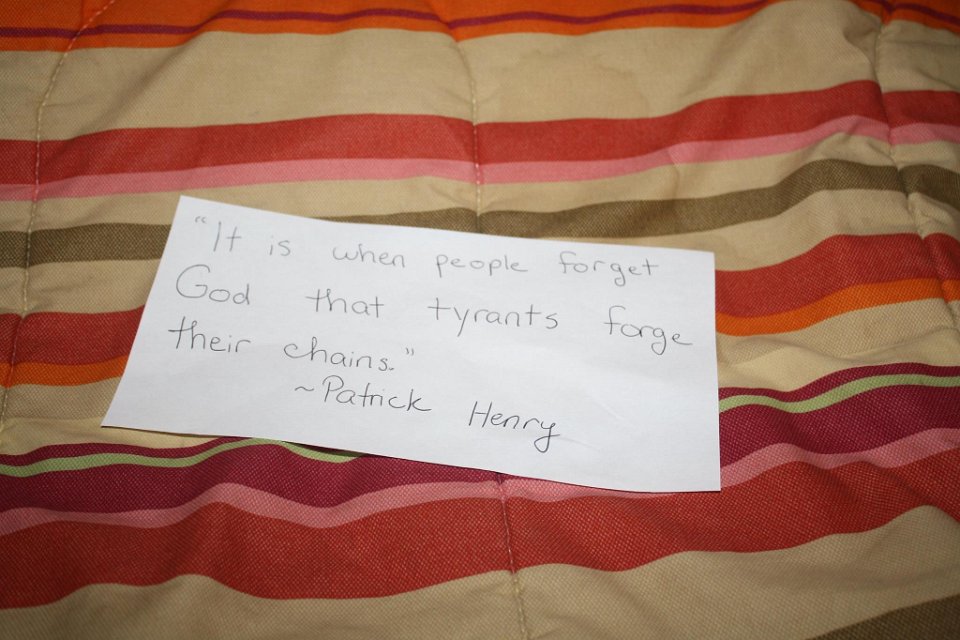 "It is when people forget
God that tyrants forge
their chains."
~Patrick Henry